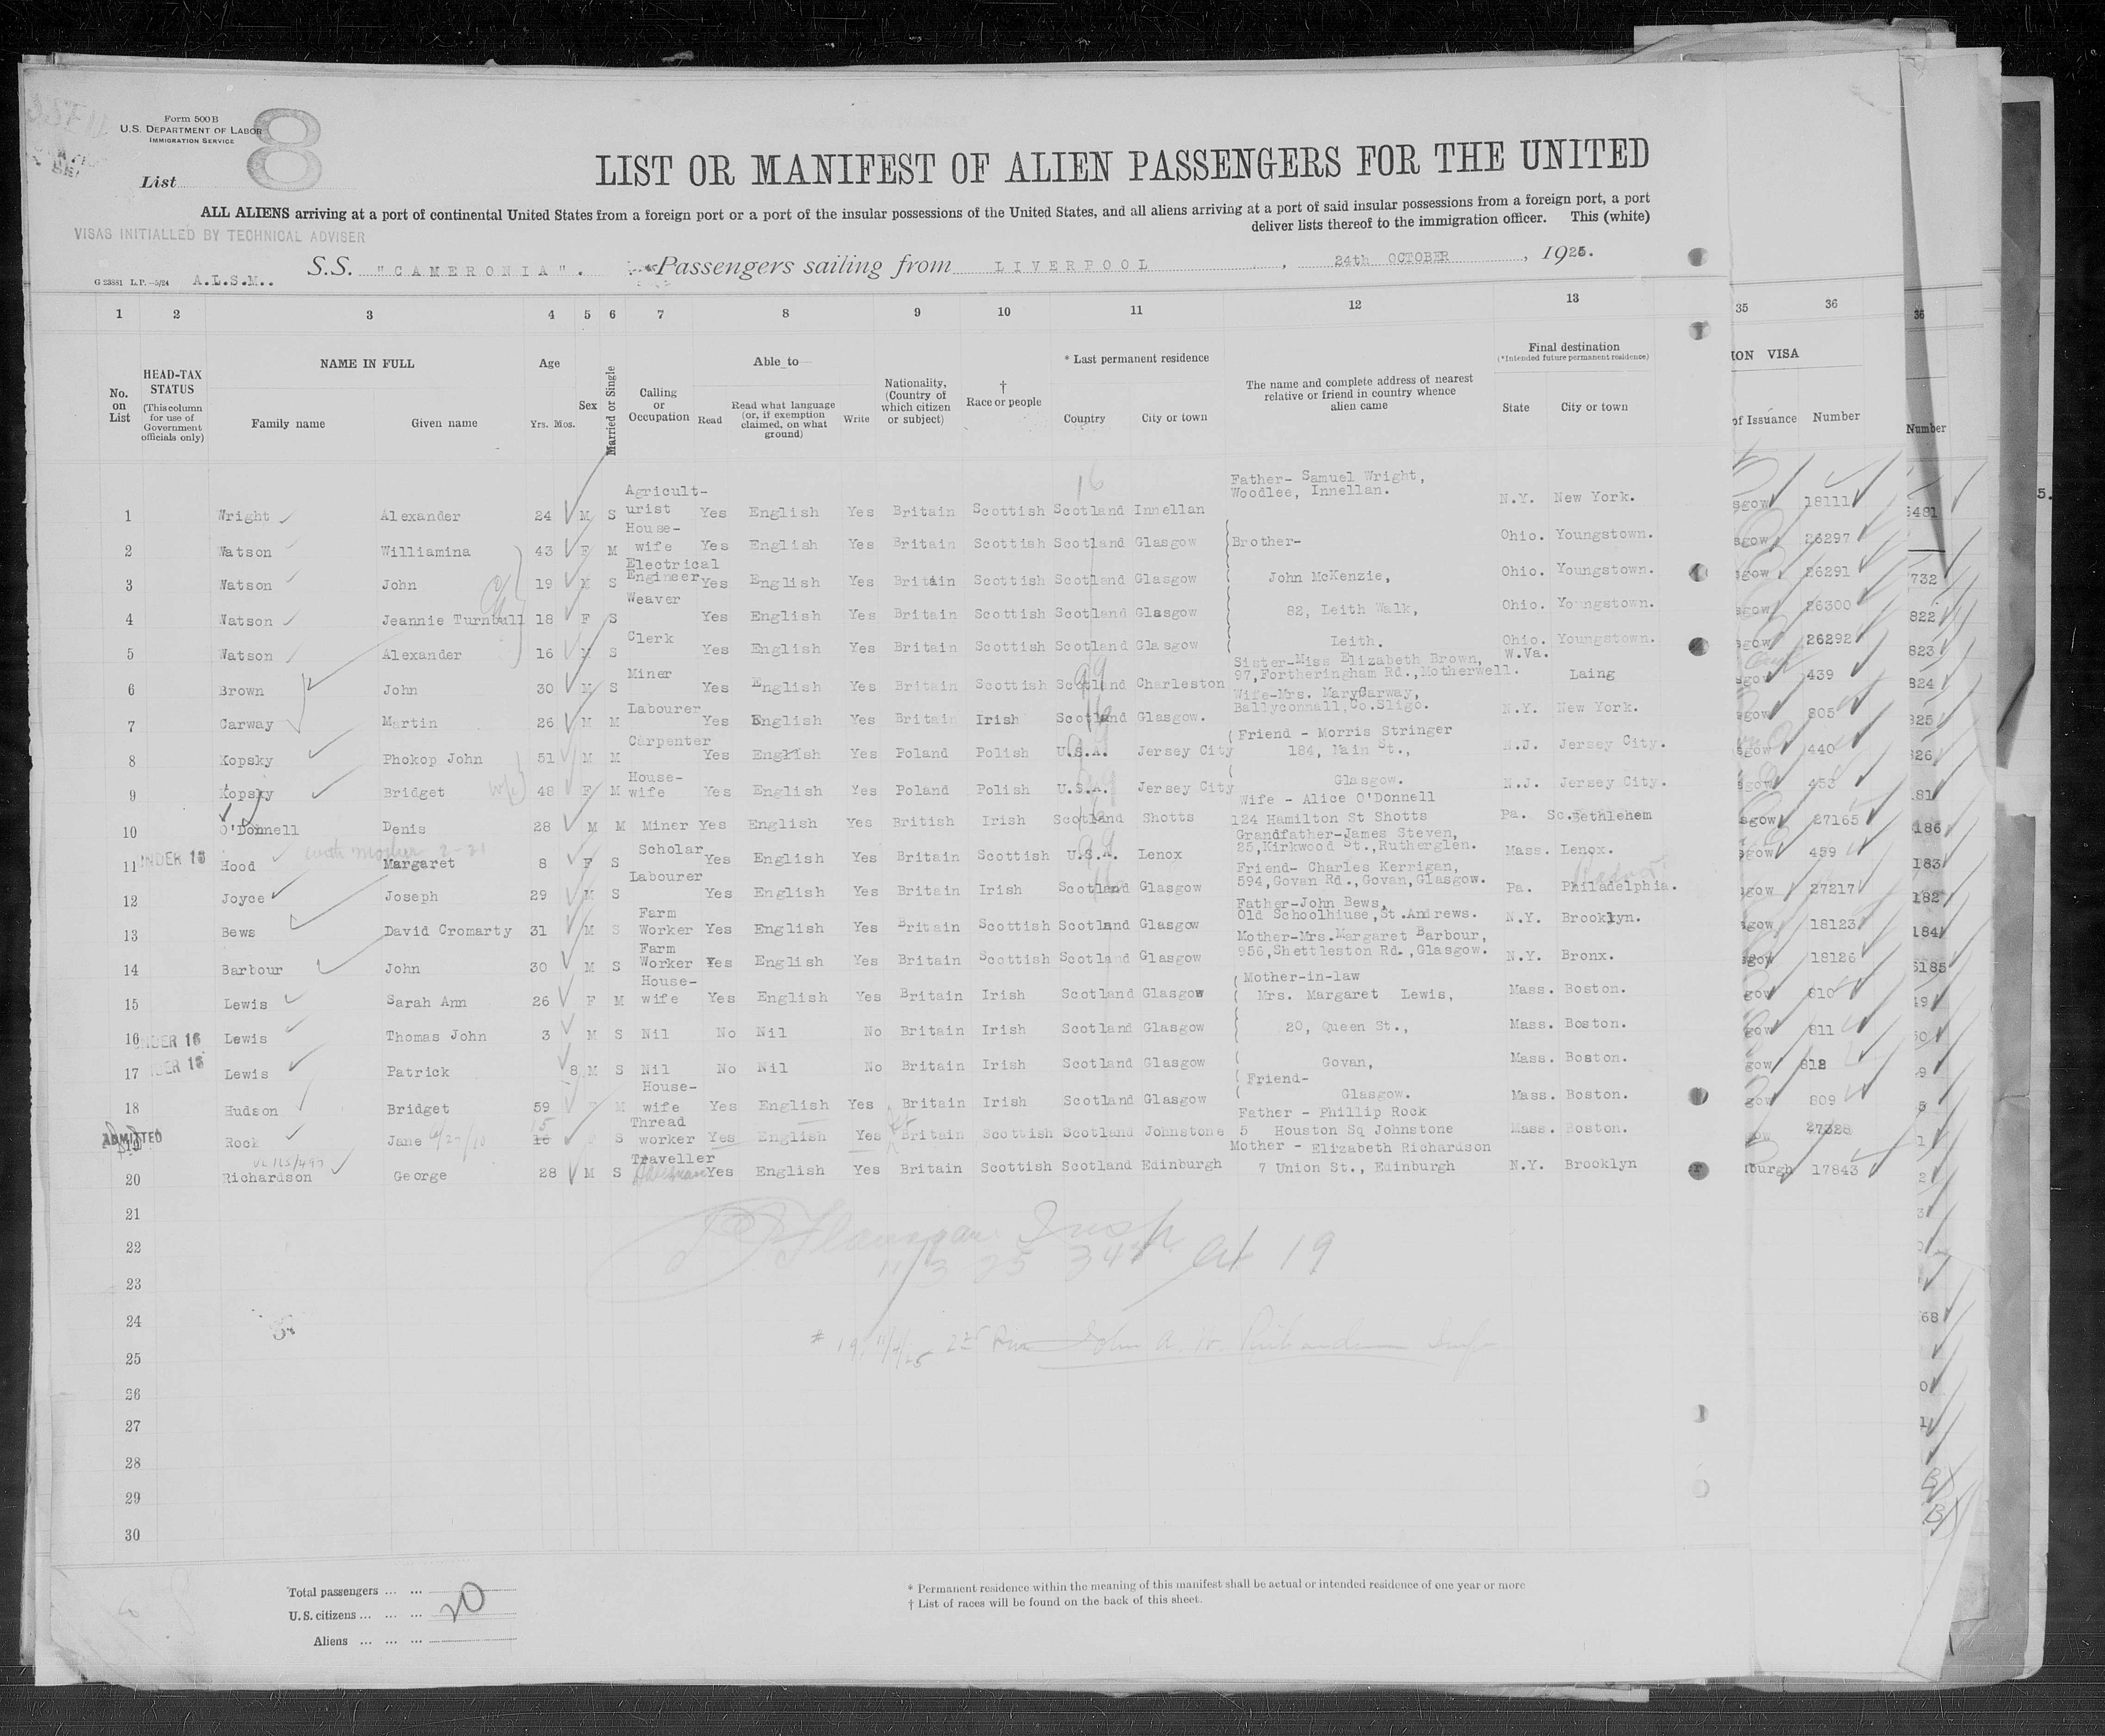 Form 500 B
U.S. DEPARTMENT OF LABOR
IMMIGRATION SERVICE
8
List
LIST OR MANIFEST OF ALIEN PASSENGERS FOR THE UNITED
ALL ALIENS arriving at a port of continental United States from a foreign port or a port of the insular possessions of the United States, and all aliens arriving at a port of said insular possessions from a foreign port, a port
deliver lists thereof to the immigration officer. This (white)
VISAS INITIALLED BY TECHNICAL ADVISER
S.S. "CAMERONIA". Passengers sailing from LIVERPOOL, 24th OCTOBER, 1925.
G 23881 L.P.—5/24 A.L.S.M..
1 2 3 4 5 6 7 8 9 10 11 12 13 35 36
No. on List
HEAD-TAX STATUS (This column for use of Government officials only)
NAME IN FULL Family name Given name
Age Yrs. Mos.
Sex
Married or Single
Calling or Occupation
Able to Read Read what language (or, if exemption claimed, on what ground) Write
Nationality, (Country of which citizen or subject)
† Race or people
* Last permanent residence Country City or town
The name and complete address of nearest relative or friend in country whence alien came
Final destination (*Intended future permanent residence) State City or town
ION VISA of Issuance Number
Number
1 Wright Alexander 24 M S Agricult-urist Yes English Yes Britain Scottish Scotland Innellan Father- Samuel Wright, Woodlee, Innellan. N.Y. New York. sgow 18111
2 Watson Williamina 43 F M House-wife Yes English Yes Britain Scottish Scotland Glasgow Brother- Ohio. Youngstown. sgow 26297
3 Watson John 19 M S Electrical Engineer Yes English Yes Britain Scottish Scotland Glasgow John McKenzie, Ohio. Youngstown. sgow 26291
4 Watson Jeannie Turnbull 18 F S Weaver Yes English Yes Britain Scottish Scotland Glasgow 82, Leith Walk, Ohio. Youngstown. sgow 26300
5 Watson Alexander 16 M S Clerk Yes English Yes Britain Scottish Scotland Glasgow Leith. Ohio. Youngstown. sgow 26292
6 Brown John 30 M S Miner Yes English Yes Britain Scottish Scotland Charleston Sister-Miss Elizabeth Brown, 97,Fortheringham Rd.,Motherwell. W.Va. Laing sgow 439
7 Carway Martin 26 M M Labourer Yes English Yes Britain Irish Scotland Glasgow. Wife-Mrs. MaryCarway, Ballyconnall,Co.Sligo. N.Y. New York. sgow 805
8 Kopsky Phokop John 51 M M Carpenter Yes English Yes Poland Polish U.S.A. Jersey City Friend - Morris Stringer 184, Main St., N.J. Jersey City. sgow 440
9 Kopsky Bridget 48 F M House-wife Yes English Yes Poland Polish U.S.A. Jersey City Glasgow. N.J. Jersey City. sgow 453
10 O'Donnell Denis 28 M M Miner Yes English Yes British Irish Scotland Shotts Wife - Alice O'Donnell 124 Hamilton St Shotts Pa. So.Bethlehem sgow 27165
11 UNDER 16 Hood with mother 2-21 Margaret 8 F S Scholar Yes English Yes Britain Scottish U.S.A. Lenox Grandfather-James Steven, 25,Kirkwood St.,Rutherglen. Mass. Lenox. sgow 459
12 Joyce Joseph 29 M S Labourer Yes English Yes Britain Irish Scotland Glasgow Friend- Charles Kerrigan, 594,Govan Rd.,Govan,Glasgow. Pa. Philadelphia. sgow 27217
13 Bews David Cromarty 31 M S Farm Worker Yes English Yes Britain Scottish Scotland Glasgow Father-John Bews, Old Schoolhiuse,St.Andrews. N.Y. Brooklyn. sgow 18123
14 Barbour John 30 M S Farm Worker Yes English Yes Britain Scottish Scotland Glasgow Mother-Mrs.Margaret Barbour, 956,Shettleston Rd.,Glasgow. N.Y. Bronx. sgow 18126
15 Lewis Sarah Ann 26 F M House-wife Yes English Yes Britain Irish Scotland Glasgow Mother-in-law Mrs. Margaret Lewis, Mass. Boston. gow 810
16 UNDER 16 Lewis Thomas John 3 M S Nil No Nil No Britain Irish Scotland Glasgow 20, Queen St., Mass. Boston. gow 811
17 Lewis Patrick 8 M S Nil No Nil No Britain Irish Scotland Glasgow Govan, Mass. Boston. gow 812
18 Hudson Bridget 59 F M House-wife Yes English Yes Britain Irish Scotland Glasgow Friend- Glasgow. Mass. Boston. gow 809
19 ADMITTED Rock Jane 15 16 F S Thread worker Yes English Yes Britain Scottish Scotland Johnstone Father - Phillip Rock 5 Houston Sq Johnstone Mass. Boston. ow 27328
20 Richardson George 28 M S Traveller Salesman Yes English Yes Britain Scottish Scotland Edinburgh Mother - Elizabeth Richardson 7 Union St., Edinburgh N.Y. Brooklyn burgh 17843
21
22
23
24
25
26
27
28
29
30
Flanagan Insp
11/3 25
19
# 19
Total passengers ... ... 20
U.S. citizens ... ... ...
Aliens ... ... ...
* Permanent residence within the meaning of this manifest shall be actual or intended residence of one year or more
† List of races will be found on the back of this sheet.